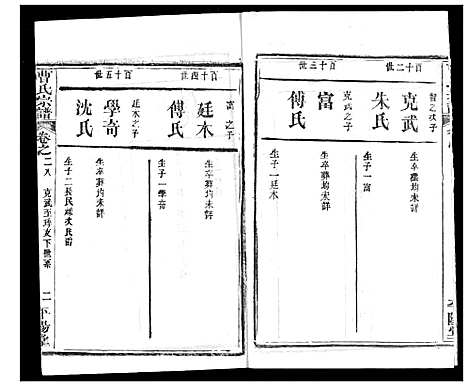 百十二世
智之次子
克武
生卒葬均未詳
朱氏
生子一富
百十三世
克武之子
富
生卒葬均未詳
傅氏
生子一廷木
百十四世
富之子
廷木
生卒葬均未詳
傅氏
生子一學奇
百十五世
廷木之子
學奇
生卒葬均未詳
沈氏
生子二長民 次民
曹氏宗譜
卷之二八
克武至 下世系
二
平陽堂